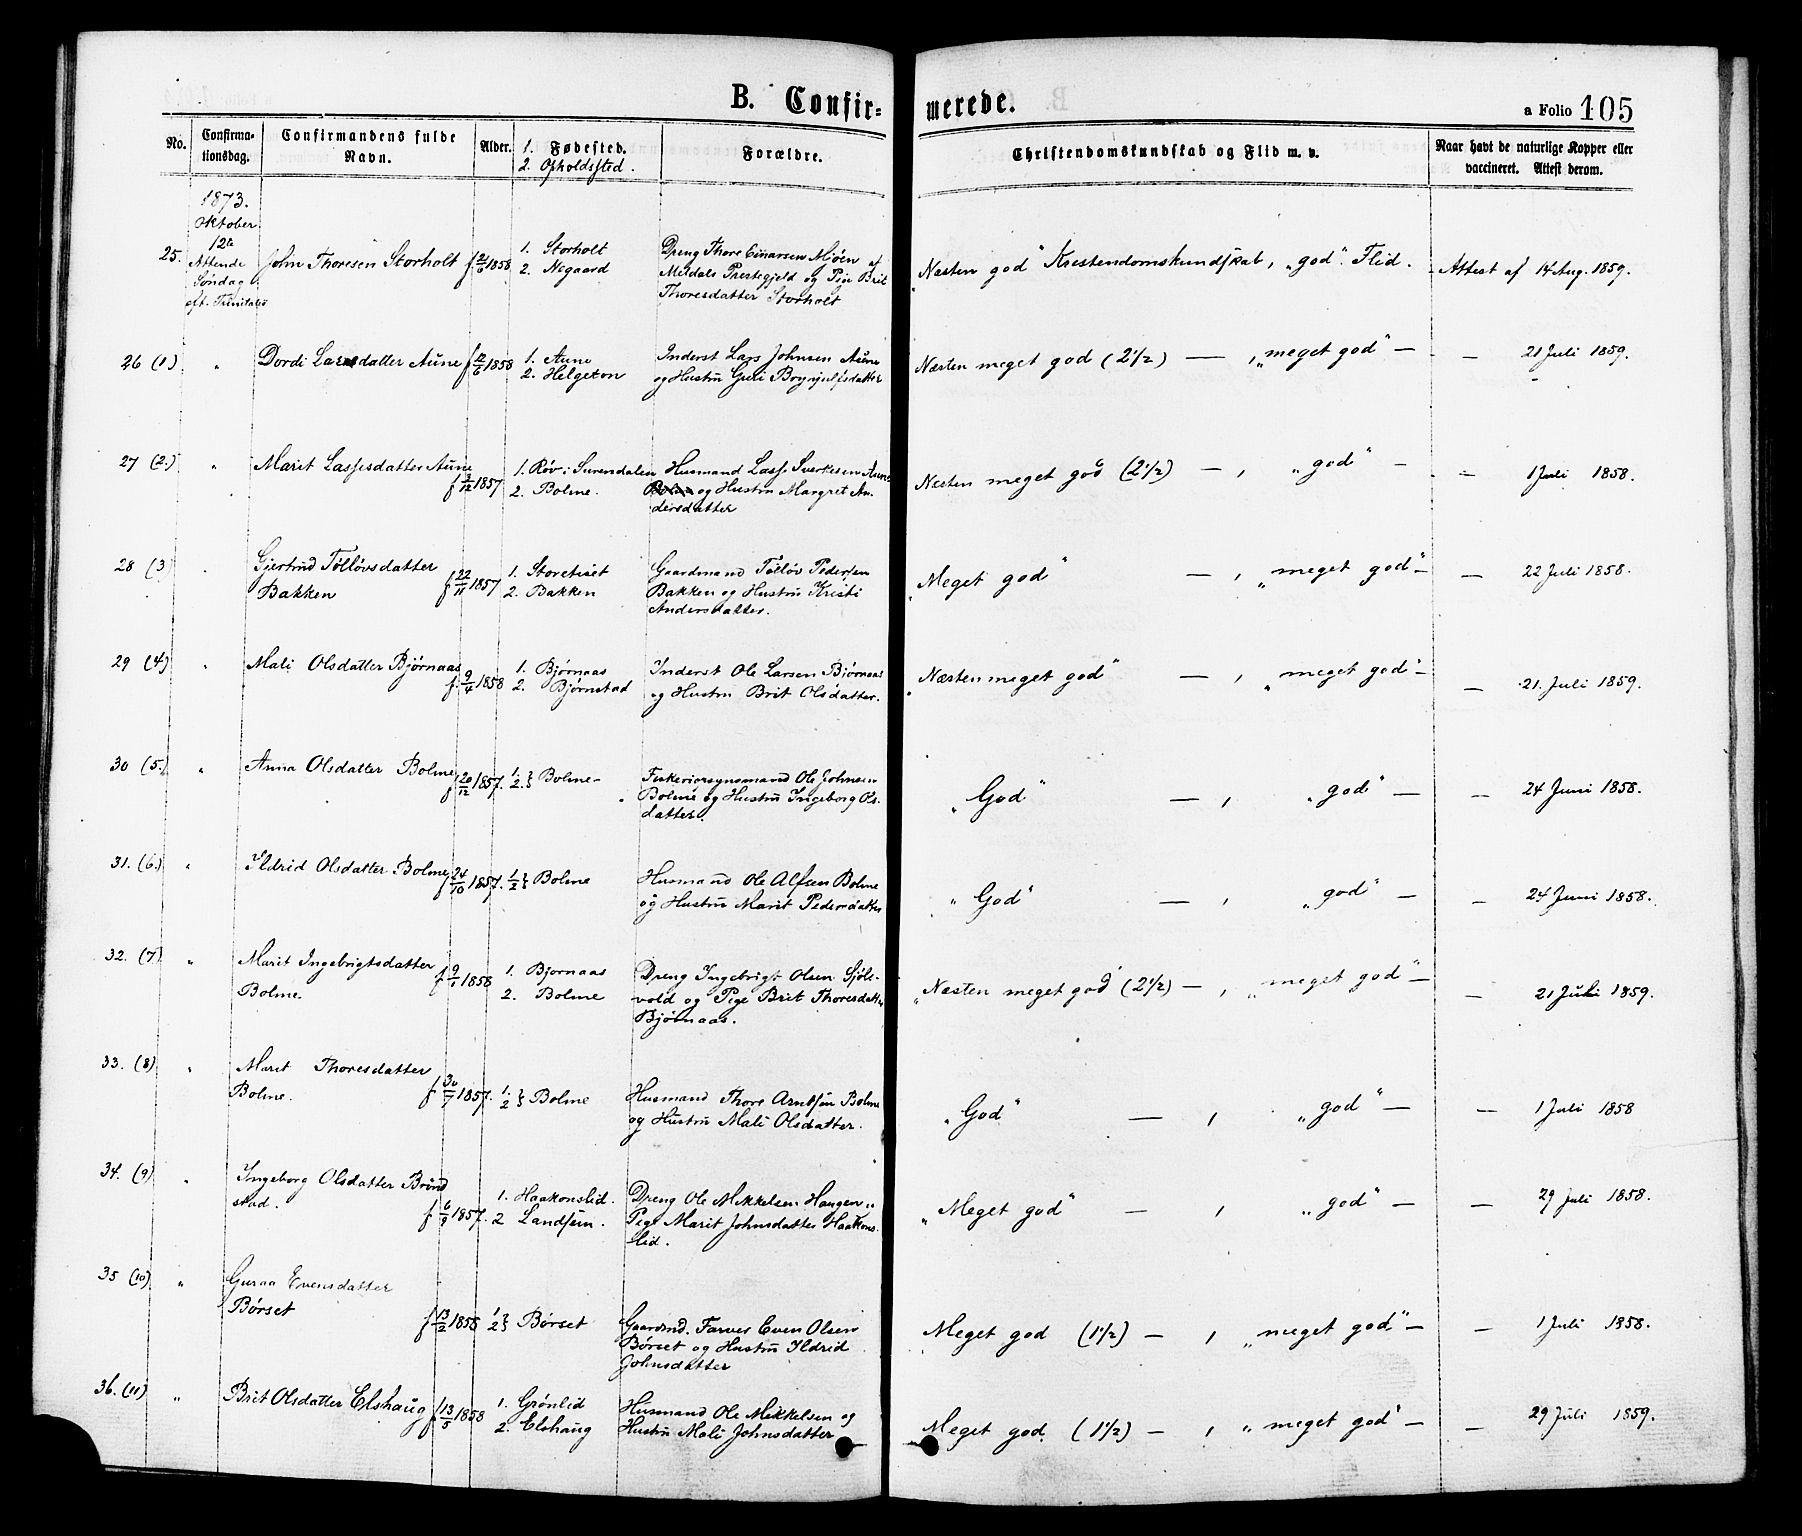 B. Confir- merede.
a Folio 105
No.
Confirma-
tionsdag.
Confirmandens fulde
Navn.
Alder.
1. Fødested.
2. Opholdssted.
Forældre.
Christendomskundskab og Flid m. v.
Naar havt de naturlige Kopper eller
vaccineret. Attest derom.
1873.
Oktober
12te
Attende
Søndag
eft. Trinitatis
25. John Thoresen Storholt f 21/6 1858
1. Storholt
2. Negaard
Dreng Thore Einarsen Mjøen af
Meldals Prestegjeld og Pige Brit
Thoresdatter Storholt
"Næsten god" Kristendomskundskab, "god" Flid. - Attest af 14 Aug. 1859.
26 (1) " Dordi Larsdatter Aune f 12/6 1858
1. Aune
2. Helgeton
Inderst Lars Johnsen Aune
og Hustru Guri Brynjulfsdatter
Næsten meget god (2 1/2) — "meget god" — — 21 Juli 1859.
27 (2.) " Marit Lassesdatter Aune
f 3/12 1857
1. Røv i Surendalen
2. Bolme.
Husmand Lasse Sverkesen Aune
Bolme og Hustru Margret An-
dersdatter
Næsten meget god (2 1/2) — , "god" — — 1 Juli 1858.
28 (3) Gjertrud Tølløvsdatter
Bakken
f 22/11 1857
1. Storetrøet
2. Bakken
Gaardmand Tølløv Pedersen
Bakken og Hustru Kristi
Andersdatter.
"Meget god" — , "meget god" — — 22 Juli 1858.
29 (4) Mali Olsdatter Bjørnaas
f. 9/4 1858
1. Bjørnaas
2. Bjørnstad
Inderst Ole Larsen Bjørnaas
og Hustru Brit Olsdatter.
"Næsten meget god" — , "meget god" — — 21. Juli 1859.
30 (5.) " Anna Olsdatter Bolme
f 20/12 1857.
1.
2. } Bolme-
Fiskeriopsynsmand Ole Johnsen
Bolme og Hustru Ingeborg Ols-
datter.
"God" — , "god" — — 24 Juni 1858.
31. (6.) " Ildrid Olsdatter Bolme f 24/10 1857.
1
2 } Bolme
Husmand Ole Alfsen Bolme
og Hustru Marit Pedersdatter
"God" — , "god" — — 24 Juni 1858.
32. (7) " Marit Ingebrigtsdatter
Bolme.
f 9/1 1858
1. Bjørnaas
2. Bolme
Dreng Ingebrigt Olsen Sjøls-
vold og Pige Brit Thoresdatter
Bjørnaas.
"Næsten meget god" (2 1/2) — , "meget god" — — 21 Juli 1859.
33. (8) " Marit Thoresdatter
Bolme.
f 30/7 1857.
1.
2 } Bolme
Husmand Thore Arntsen Bolme
og Hustru Mali Olsdatter.
"God" — , "god" — — 1 Juli 1858
34. (9) " Ingeborg Olsdatter Brønd
stad.
f 6/9 1857.
1. Haakonslid.
2 Landsem.
Dreng Ole Mikkelsen Haugen "
Pige Marit Johnsdatter Haakons-
lid.
"Meget god" — , "god" — — 29 Juli 1858.
35 (10) " Guraa Evensdatter
Børset
f 13/2 1858
1
2 } Børset
Gaardmd. Farver Even Olsen
Børset og Hustru Ildrid
Johnsdatter
Meget god (1 1/2) — , "meget god" — — 1 Juli 1858.
36. (11) " Brit Olsdatter Elshaug f 13/5 1858
1. Grønlid
2. Elshaug
Husmand Ole Mikkelsen og
Hustru Mali Johnsdatter
Meget god. (1 1/2) — , "meget god" — — 29 Juli 1859.